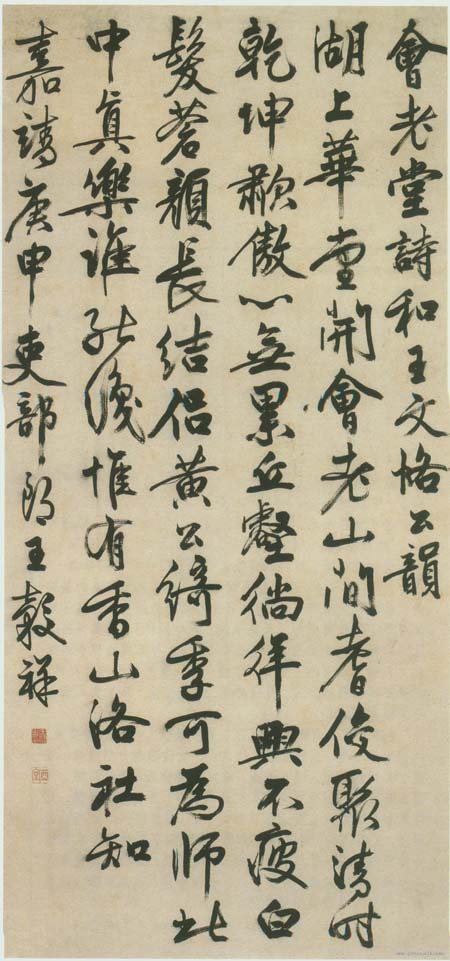 會老堂詩和王文恪公韻
湖上華堂開會老山間耆俊聚清時
乾坤歗傲心無累丘壑徜徉興不疲白
髮蒼顏長結侶黃公綺季可為師此
中真樂誰能識惟有香山洛社知
嘉靖庚申吏部郎王穀祥